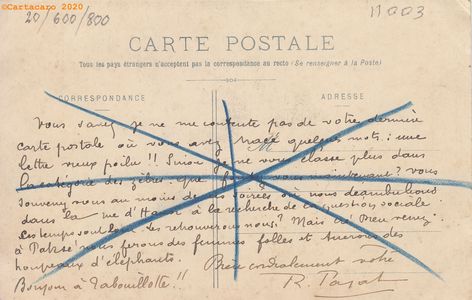 ©Cartacaro 2020
20/600/800
M003
CARTE POSTALE
Tous les pays étrangers n'acceptent pas la correspondance au recto (Se renseigner à la Poste)
CORRESPONDANCE
ADRESSE
Vous savez je ne me contente pas de votre dernière
carte postale où vous avez tracé quelques mots : une
lettre vieux poilu !! Sinon je ne vous classe plus dans
la catégorie des zèbres. que faites vous maintenant ? vous
souvenez vous au moins de nos soirées où nous déambulions
dans la rue d' à la recherche de la question sociale
Ces temps les retrouverons nous ? Mais Dieu venez
à nous ferons des femmes folles et tuerons des
troupeaux d'éléphants. Bien cordialement votre
Bonjour à Tabouillotte !! R.